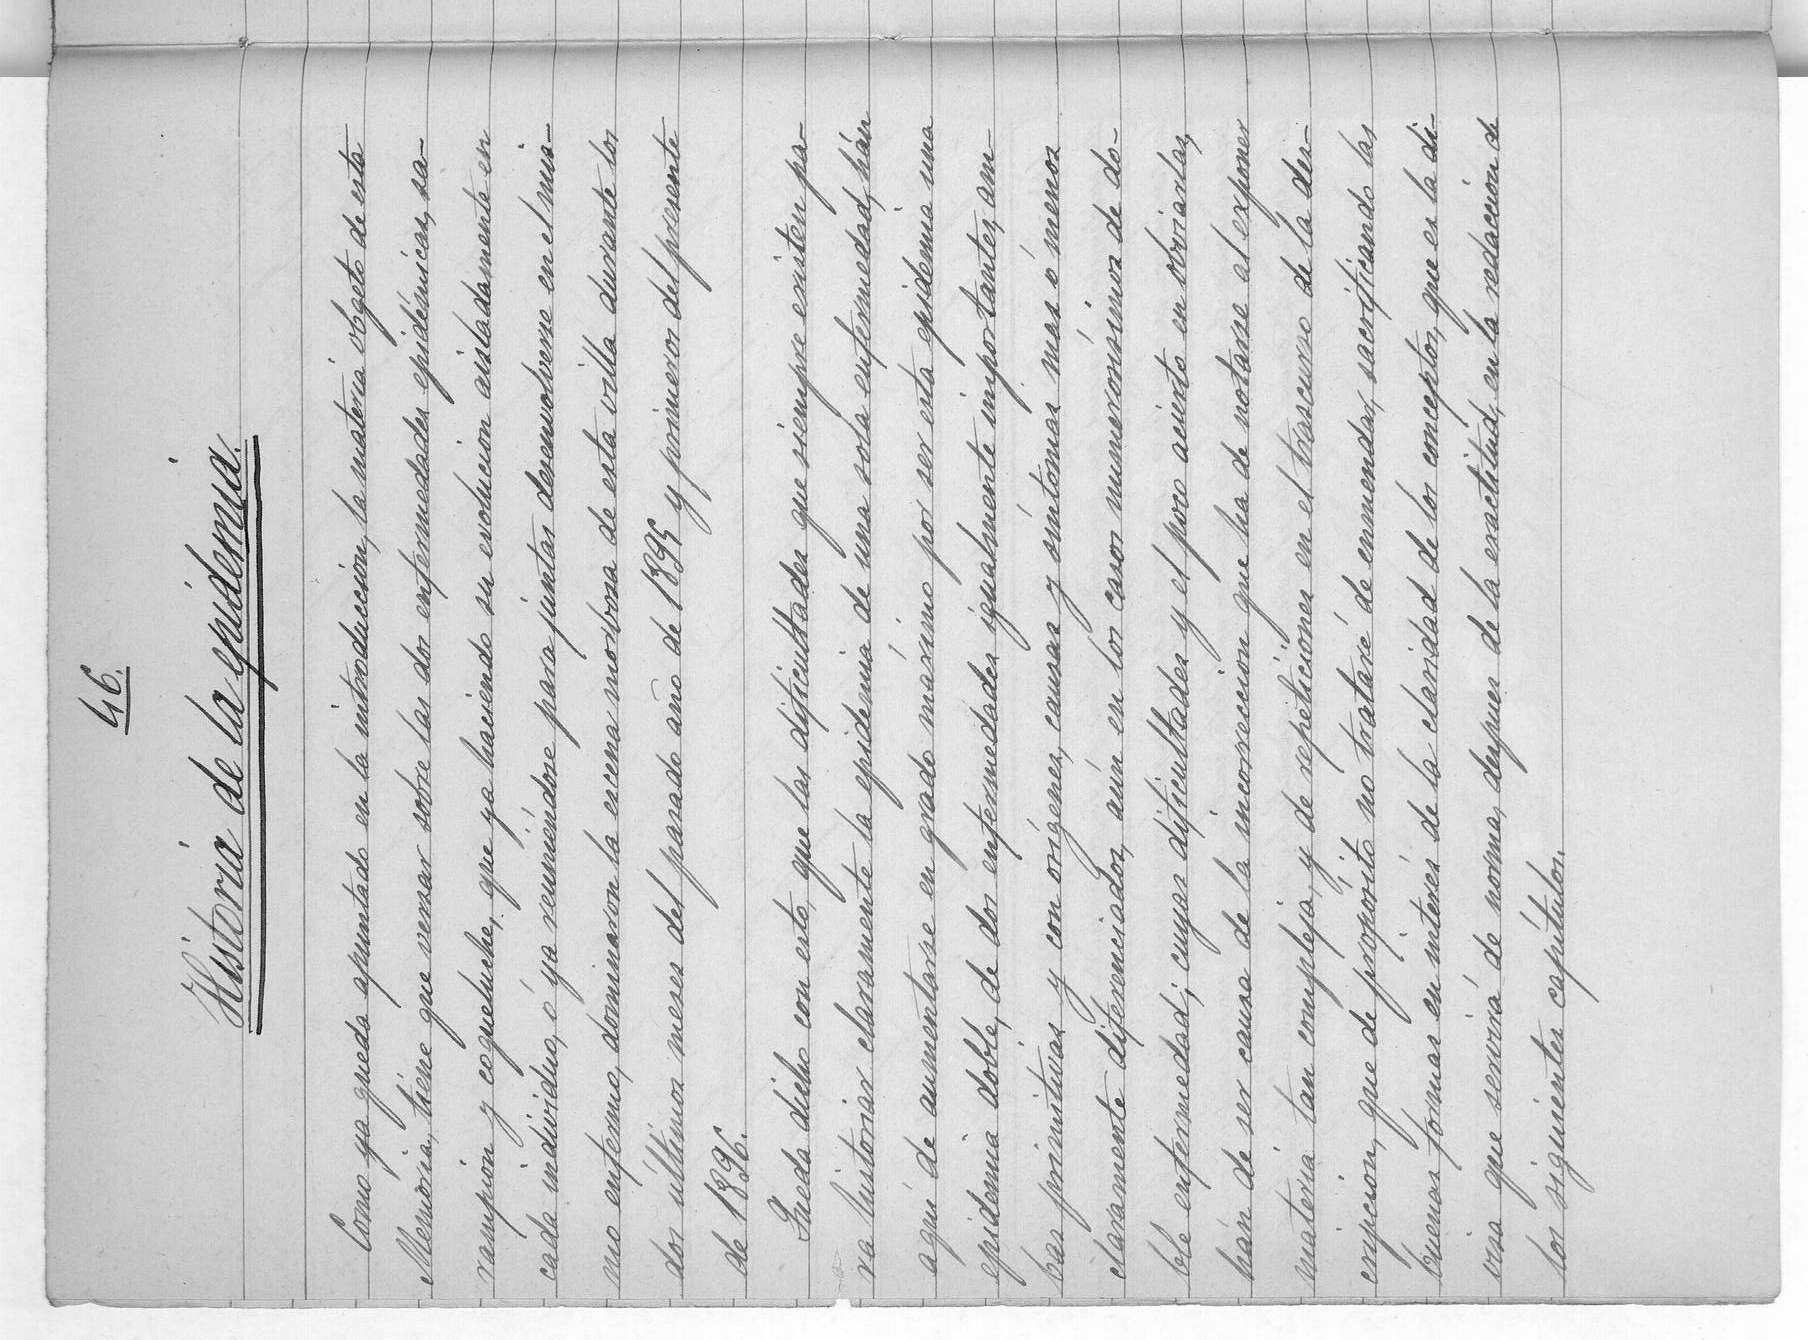 46.
Historia de la epidemia.
Como ya queda apuntado en la introducción, la materia obgeto de esta
Memoria, tiene que versar sobre las dos enfermedades epidémicas, sa-
rampion y coqueluche, que ya haciendo su evolucion aisladamente en
cada individuo, ó ya reuniéndose para juntas desenvolverse en el mis-
mo enfermo, dominaron la escena morbosa de esta villa durante los
dos ultimos meses del pasado año de 1895 y primeros del presente
de 1896.
Queda dicho con esto, que las dificultades que siempre existen pa-
ra historiar claramente la epidemia de una sola enfermedad, hán
aqui de aumentarse en grado máximo por ser esta epidemia una
epidemia doble, de dos enfermedades igualmente importantes, am-
bas primitivas y con origenes, causas y sintomas mas ó menos
claramente diferenciados, aún en los casos numerosisimos de do-
ble enfermedad; cuyas dificultades y el poco acierto en obviarlas,
hán de ser causa de la incorreccion que ha de notarse al exponer
materia tan compleja, y de repeticiones en el trascurso de la des-
cripcion, que de propósito no trataré de enmendar, sacrificando las
buenas formas en interés de la claridad de los conceptos, que es la di-
visa que servirá de norma, despues de la exactitud, en la redaccion de
los siguientes capitulos.